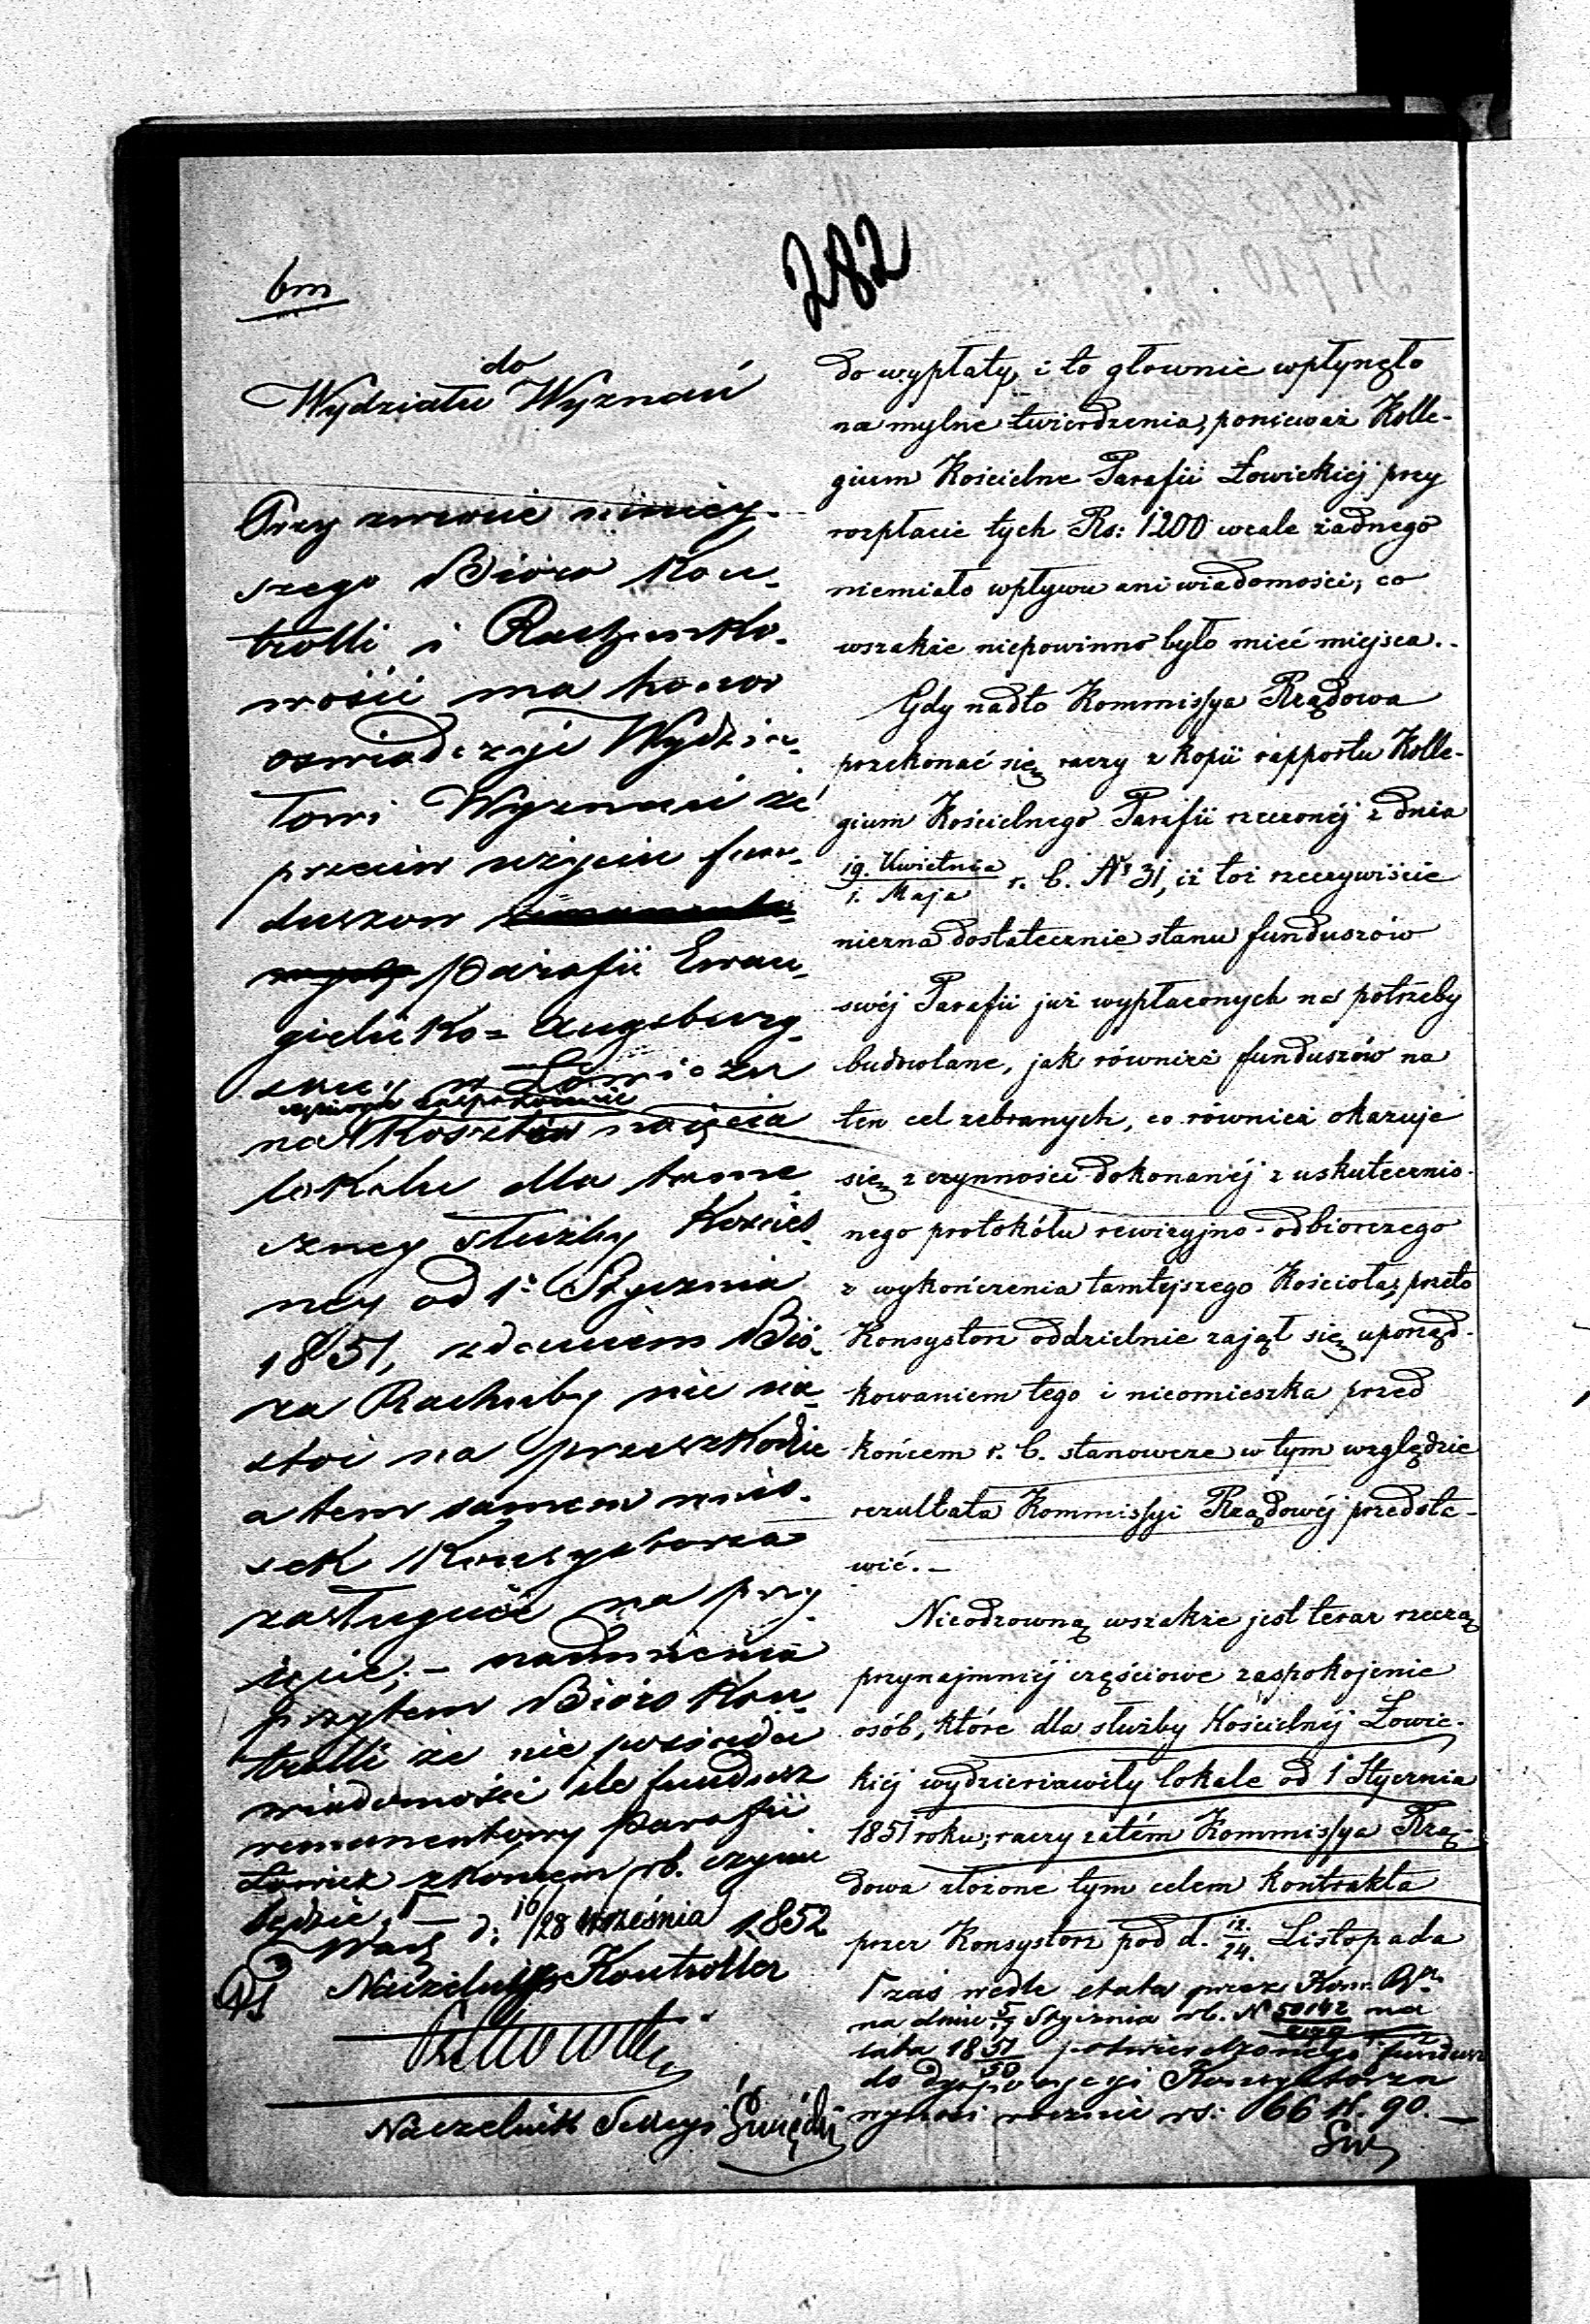 282
bm
do
Wydziału Wyznań
Przy zwrocie niniey-
szego Bióro Kon-
trolli i Rachunko-
wości ma honor
oswiadczyć Wydzia-
łowi Wyznań że
przeciw użyciu fun-
duszow
Parafii Ewan-
gielicko-Augsburg-
skiey w Łowiczu
częściowe zaspokojenie
na kosztów najęcia
lokalu dla tame-
czney służby Kościel-
ney od 1° Stycznia
1851, zdaniem Bió-
ra Rachuby nic nie
stoi na przeszkodzie
a tem samem wnio-
sek Konsystorza
zasługuie na przy-
ięcie; – nadmienia
przytem Bióro Kon-
trolli że nie posiada
wiadomości ile fundusz
remanentowy Parafii
Łowicz z końcem rb. czyni
będzie, Γ –
Warsz d: 16/28 Września 1852
Naczelnik Kontroller
Naczelnik Sekcyi Święcki
do wypłaty, i to głownie wpłynęło
na mylne twierdzenia, ponieważ Kolle-
gium Kościelne Parafii Łowickiéj przy
rozpłacie tych Rs: 1200 wcale żadnego
niemiało wpływu ani wiadomości, co
wszakże niepowinno było mieć miejsca..
Gdy nadto Kommissya Rządowa
przekonać się raczy z kopii rapportu Kolle-
gium Kościelnego Parafii rzeczonéj z dnia
19. Kwietnia / 1. Maja r. b. Nr 31, iż toż rzeczywiście
niezna dostatecznie stanu funduszów
swéj Parafii już wypłaconych na potrzeby
budowlane, jak również funduszów na
ten cel zebranych, co również okazuje
się z czynności dokonanéj z uskutecznio-
nego protokółu rewizyjno-odbiorczego
z wykończenia tamtejszego Kościoła; przeto
Konsystorz oddzielnie zajął się uporząd-
kowaniem tego i nieomieszka przed
końcem r. b. stanowcze w tym względzie
rezultata Kommissyi Rządowéj przedsta-
wić. –
Nieodzowną wszakże jest teraz rzeczą
przynajmniéj częściowe zaspokojenie
osób, które dla służby Kościelnéj Łowic-
kiéj wydzierżawiły lokale od 1 Stycznia
1851 roku; raczy zatém Kommissya Rzą-
dowa złożone tym celem kontrakta
przez Konsystorz pod d. 12./24. Listopada
Γ zaś wedle etatu przez Kom. Rz.
na dniu 5/17 Stycznia rb. N 50142 na
lata 18 51/56 potwierdzonego fundusz
do dyspozycyi Konsystorza
wynosi rocznie rs: 66 k. 90. –
Sw